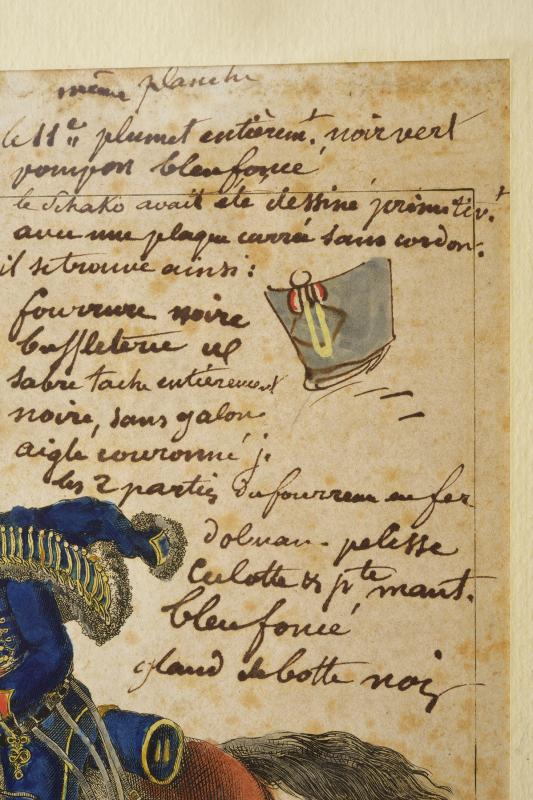 même planche
le 11e plumet entièremt. noir vert
pompon bleu foncé
le Schako avait été dessiné primitivt.
avec une plaque carrée sans cordon.
il se trouve ainsi :
fourrure noire
buffleterie
sabretache entièrement
noire, sans galon
aigle couronné j.
les 2 parties du fourreau en fer
dolman - pelisse
Culotte & pte mant.
bleu foncé
gland de botte noir